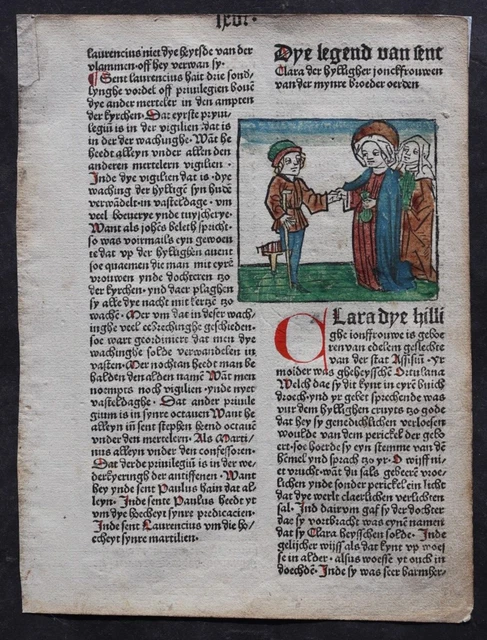 lxvi·
laurencius niet dye heytsde van der
vlammen·off hey verwan sy·
¶ Sent laurencius hait drie sond/
lynghe vordel off priuilegien bouē
dye ander merteler in den ampten
der kyrchen· Dat eyrste priui-
legiū is in der vigilien dat is
in der wachinghe· Wāt he
heedt alleyn vnder allen den
anderen mertelern vigilien·
Inde dye vigilien dat is·dye
waching der hyllige syn hude
verwādelt·in vasteldage·vm
veel boeuerye ynde tuyscherye·
Want als johēs beleth spricht·
so was voirmails eyn gewoen
te dat vp der hyllighen auent
soe quaemen die man mit eyrē
vrouwen ynde dochteren tzo
der kyrchen·ynd daer plaghen
sy alle dye nacht mit kertzē tzo
wachē· Mer vm dat in deser wach-
inghe veel gheschieden·
soe wart geordiniert dat men dye
wachinghe solde verwandelen in
vasten· Mer nochtan heedt man be
halden den alden namē Wāt men
noempts noch vigilien·ynde nyet
vasteldaghe· Dat ander priuile
gium is in synre octauen Want he
alleyn iñ sent stephen heend octauē
vnder den mertelern· Als Marti/
nus alleyn vnder den confessoren·
Dat derde priuilegiū is in der we-
derkyeringh der antiffenen· Want
hey ynde sent Paulus hain dat al-
leyn· Inde sent Paulus heedt yt
vm dye hocheyt synre predicacien·
Inde sent Laurencius vm die ho/
cheyt synre martilien·
Dye legend van sent
Clara der hylligher jonckfrouwen
van der mynre broeder oerden
CLara dye hilli
ghe ionffrouwe is geboe
ren van edelem geslechte
van der stat Assisiū· Yr
moider was gheheysschē Ortulana
Welch dae sy dit kynt in eyrē buich
droech·ynd yr gebet sprechende was
vur dem hyllighen cruyts tzo gode
dat hey sy genedichlichen verloesen
woulde van dem perickel der gebo
ert·soe hoerde sy eyn stemme van dē
hēmel ynd sprach tzo yr· O wijff ni-
et vrucht·wāt du sals geberē vroe-
lichen ynde sonder perickel ein licht
dat dye werlt claerlichen verlichten
sal· Ind dairvm gaf sy der dochter
dae sy vortbracht was eynē namen
dat sy Clara heysschen solde· Inde
gelijcher wijss als dat kynt vp woes
se in alder·alsus woesse yt ouch in
doechdē· Inde sy was seer barmher/